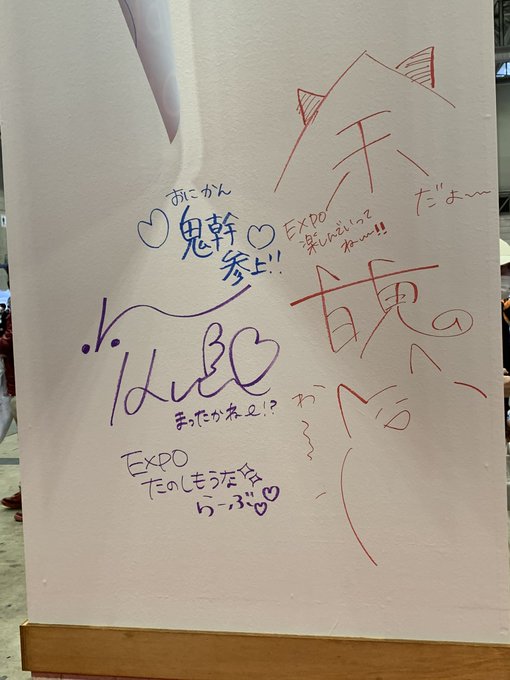 余
だよ〜〜
おにかん
♡鬼幹♡
参上!!
EXPO
楽しんでいって
ね〜!!
百鬼の
まったかねぇ!?
わ〜〜
EXPO
たのしもうな
らーぶ♡♡